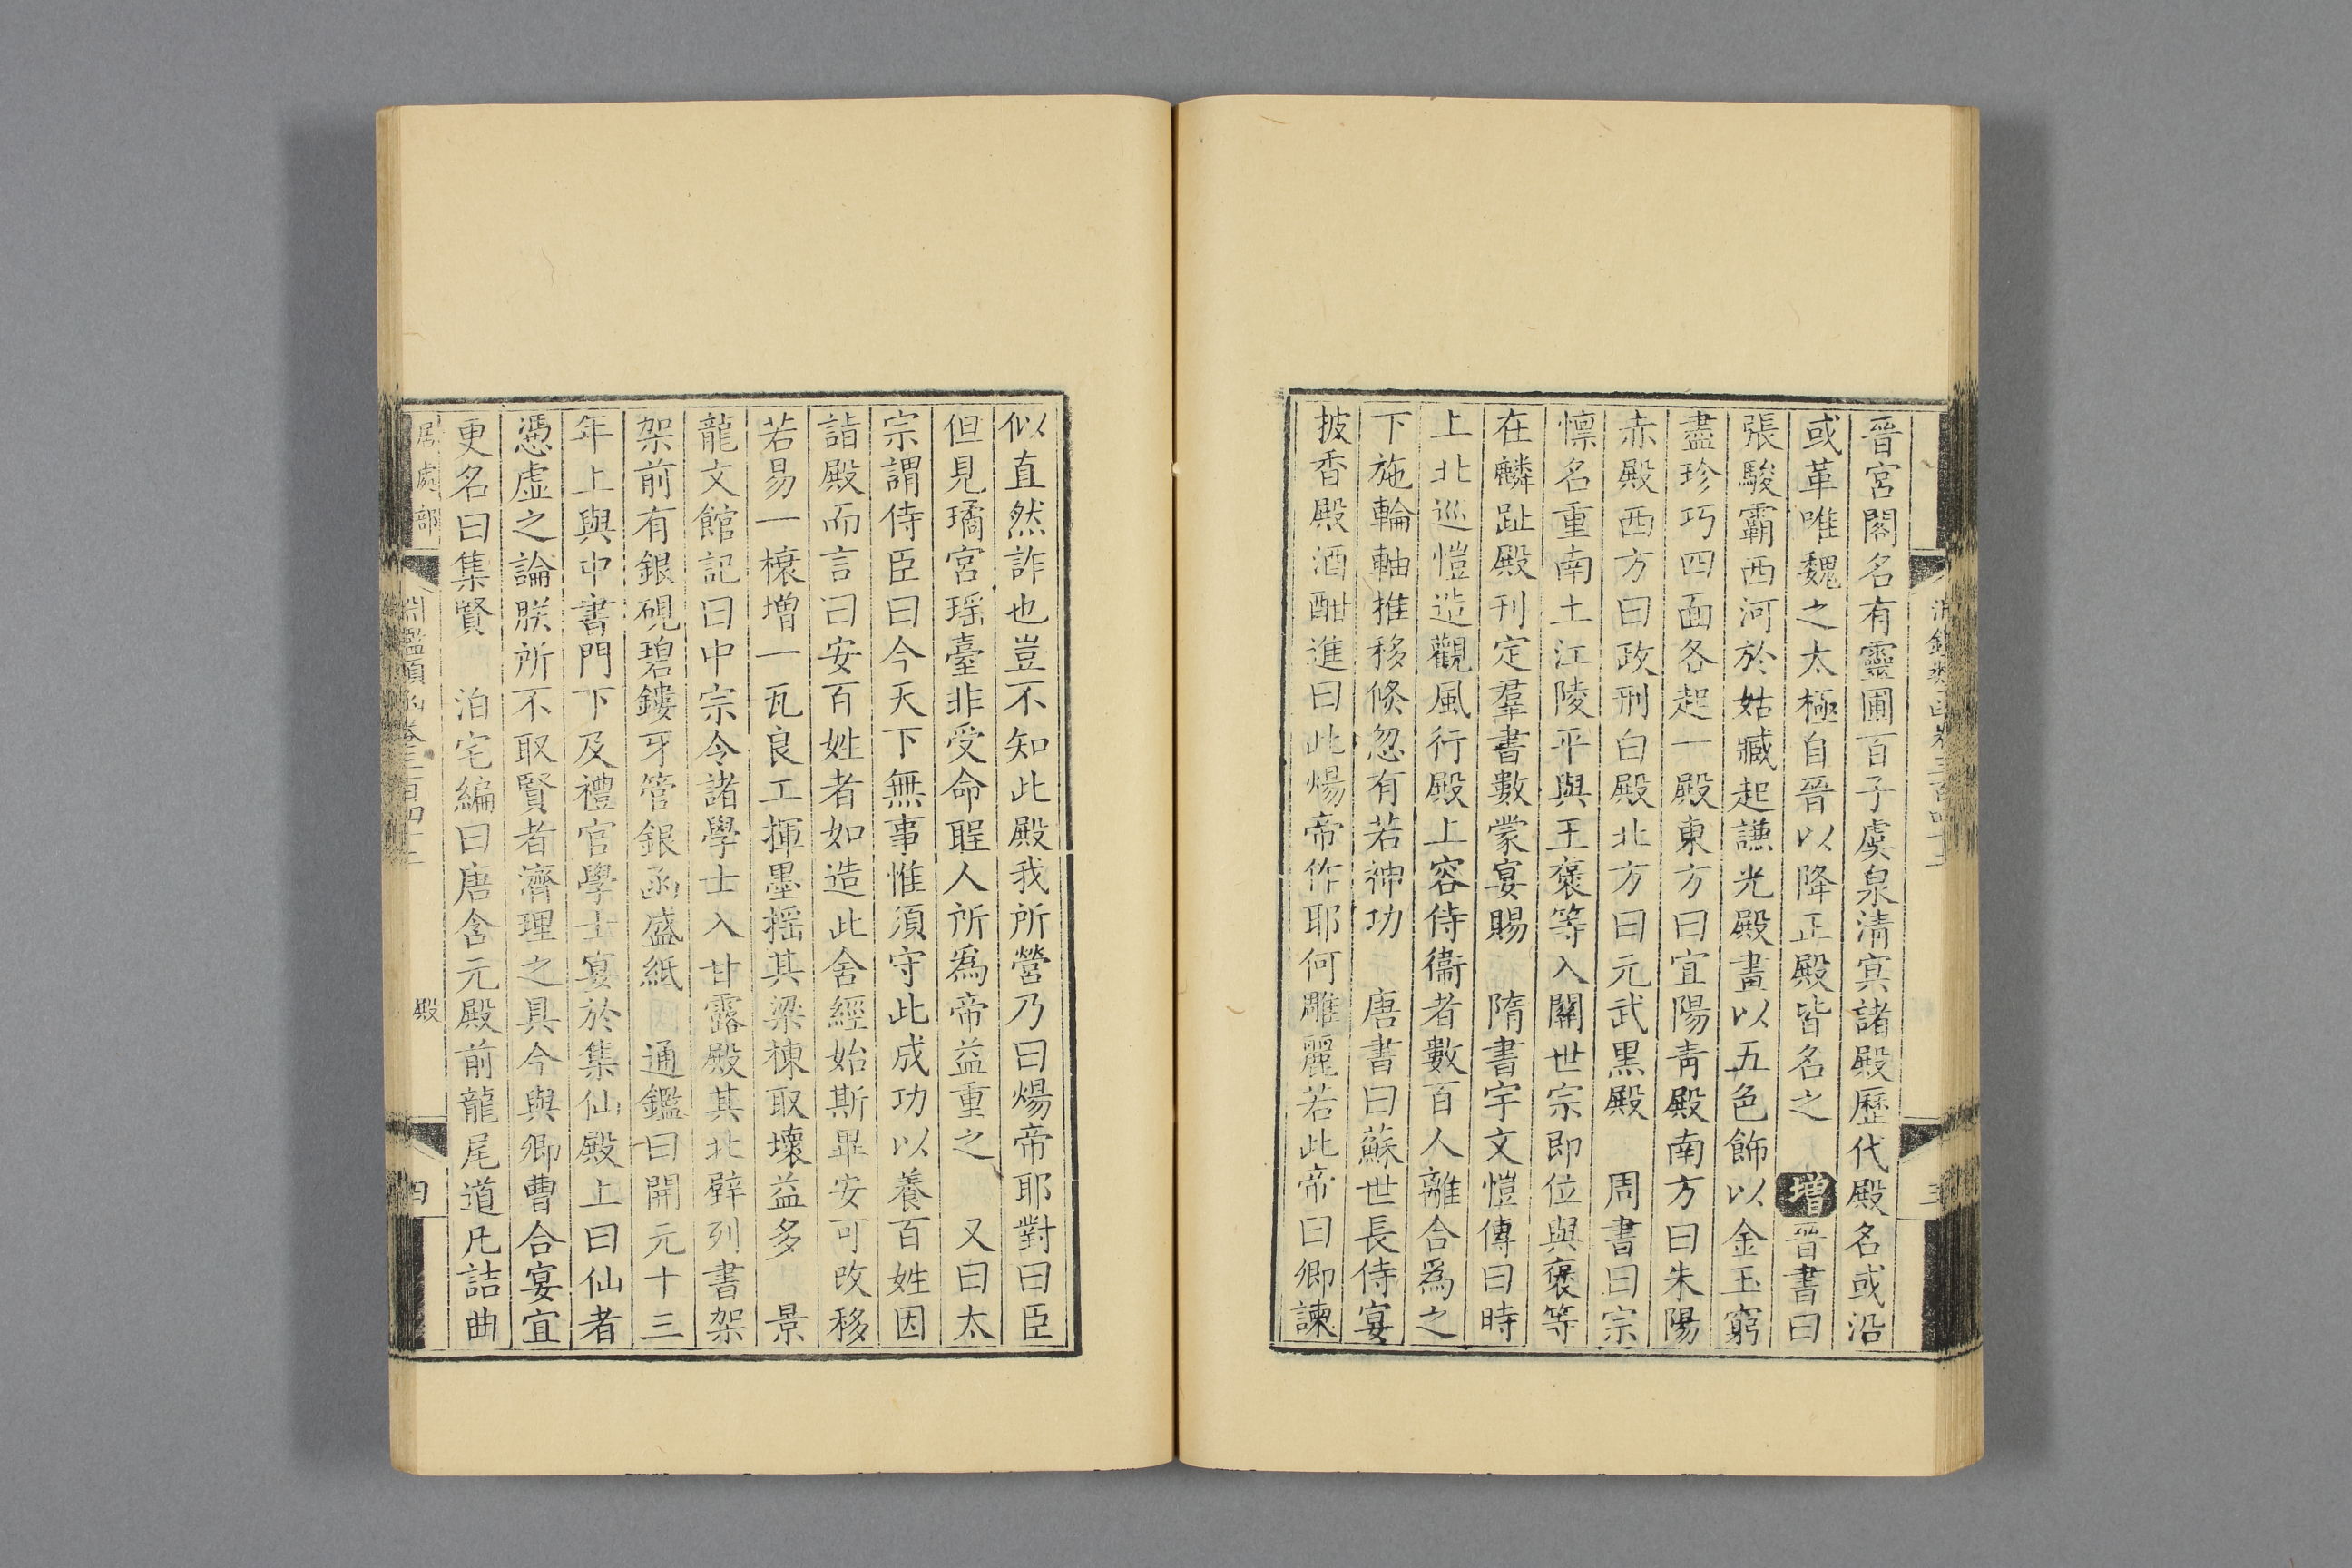 晉宮閣名有靈圃百子虞泉清㝠諸殿歷代殿名或沿
或革唯魏之太極自晉以降正殿皆名之 增 晉書曰
張駿霸西河於姑臧起謙光殿畫以五色飾以金玉窮
盡珍巧四面各起一殿東方曰宜陽青殿南方曰朱陽
赤殿西方曰政刑白殿北方曰元武黑殿 周書曰宗
懍名重南土江陵平與王褒等入關世宗即位與褒等
在麟趾殿刊定羣書數蒙宴賜 隋書宇文愷傳曰時
上北巡愷造觀風行殿上容侍衞者數百人離合爲之
下施輪軸推移倐忽有若神功 唐書曰蘇世長侍宴
披香殿酒酣進曰此煬帝作耶何雕麗若此帝曰卿諫
似直然詐也豈不知此殿我所營乃曰煬帝耶對曰臣
但見璚宮瑶臺非受命聖人所爲帝益重之 又曰太
宗謂侍臣曰今天下無事惟須守此成功以養百姓因
詣殿而言曰安百姓者如造此舍經始斯畢安可改移
若易一榱增一瓦良工揮墨摇其梁棟取壞益多 景
龍文館記曰中宗令諸學士入甘露殿其北壁列書架
架前有銀硯碧鏤牙管銀函盛紙 通鑑曰開元十三
年上與中書門下及禮官學士宴於集仙殿上曰仙者
憑虛之論朕所不取賢者濟理之具今與卿曹合宴宜
更名曰集賢 泊宅編曰唐含元殿前龍尾道凡詰曲
居處部
淵鑑類函卷三百四十二
殿
四